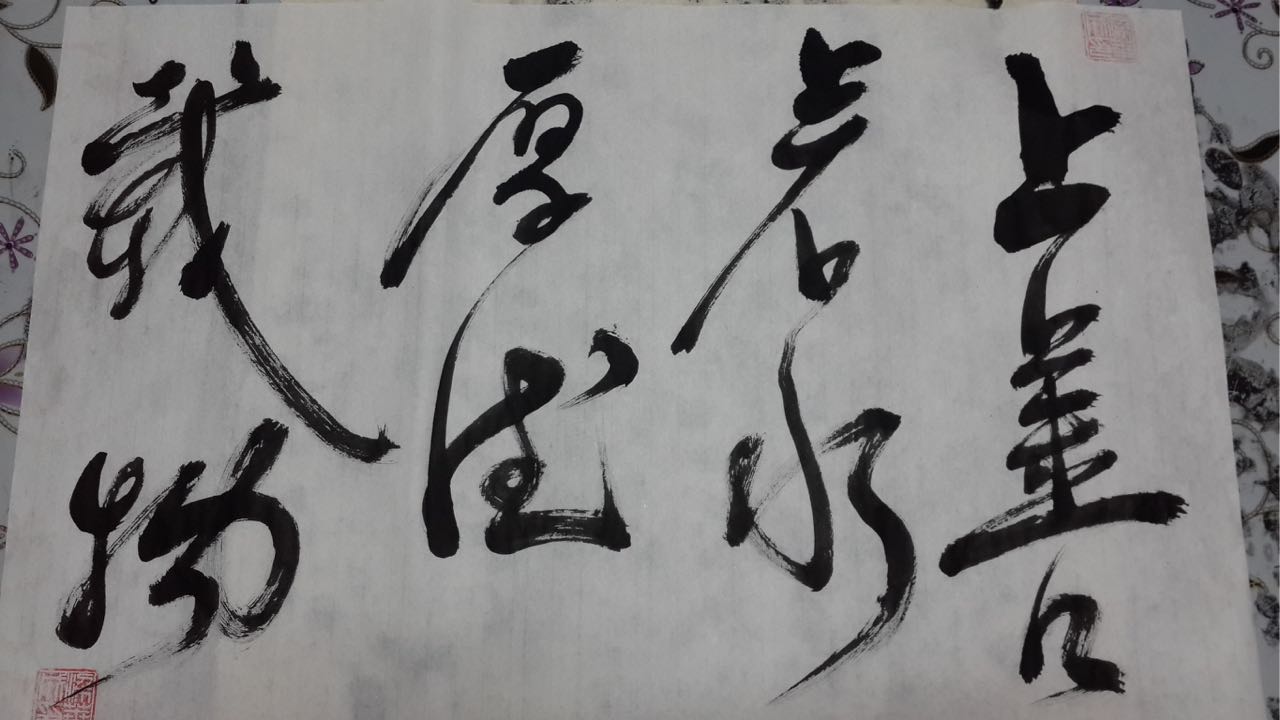 上善
若水
厚德
載物